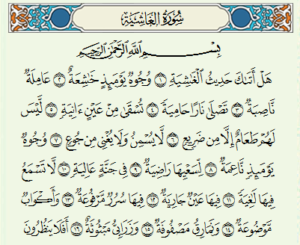 سُورَةُ الغَاشِيَةِ
بِسْمِ اللَّهِ الرَّحْمَٰنِ الرَّحِيمِ
هَلْ أَتَىٰكَ حَدِيثُ الْغَٰشِيَةِ ١ وُجُوهٌ يَوْمَئِذٍ خَٰشِعَةٌ ٢ عَامِلَةٌ
نَّاصِبَةٌ ٣ تَصْلَىٰ نَارًا حَامِيَةً ٤ تُسْقَىٰ مِنْ عَيْنٍ ءَانِيَةٍ ٥ لَّيْسَ
لَهُمْ طَعَامٌ إِلَّا مِن ضَرِيعٍ ٦ لَّا يُسْمِنُ وَلَا يُغْنِي مِن جُوعٍ ٧ وُجُوهٌ
يَوْمَئِذٍ نَّاعِمَةٌ ٨ لِّسَعْيِهَا رَاضِيَةٌ ٩ فِي جَنَّةٍ عَالِيَةٍ ١٠ لَّا تَسْمَعُ
فِيهَا لَٰغِيَةً ١١ فِيهَا عَيْنٌ جَارِيَةٌ ١٢ فِيهَا سُرُرٌ مَّرْفُوعَةٌ ١٣ وَأَكْوَابٌ
مَّوْضُوعَةٌ ١٤ وَنَمَارِقُ مَصْفُوفَةٌ ١٥ وَزَرَابِيُّ مَبْثُوثَةٌ ١٦ أَفَلَا يَنظُرُونَ